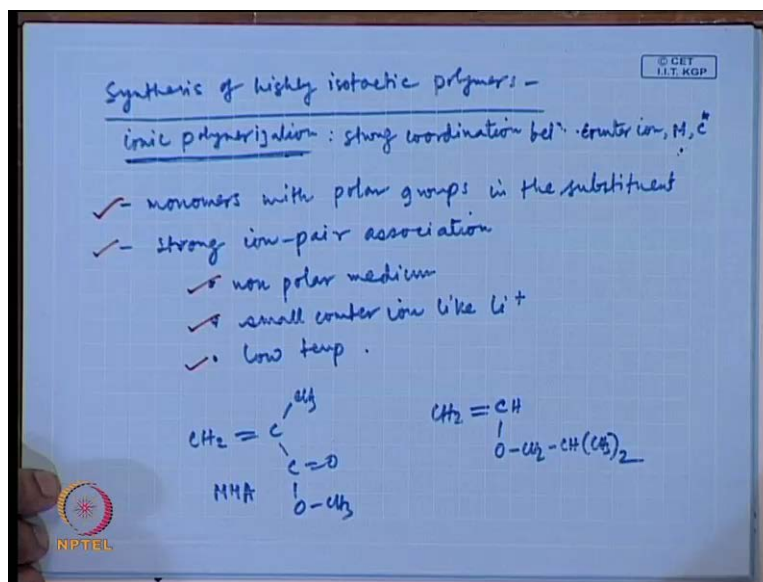 © CET
I.I.T. KGP
Synthesis of highly isotactic polymers -
ionic polymerization : strong coordination betn. counter ion, M, C*
- monomers with polar groups in the substituent
- strong ion-pair association
• non polar medium
• small counter ion like Li+
• low temp.
CH3
CH2 = C
C=O
MMA
O-CH3
CH2 = CH
O-CH2-CH(CH3)2
NPTEL